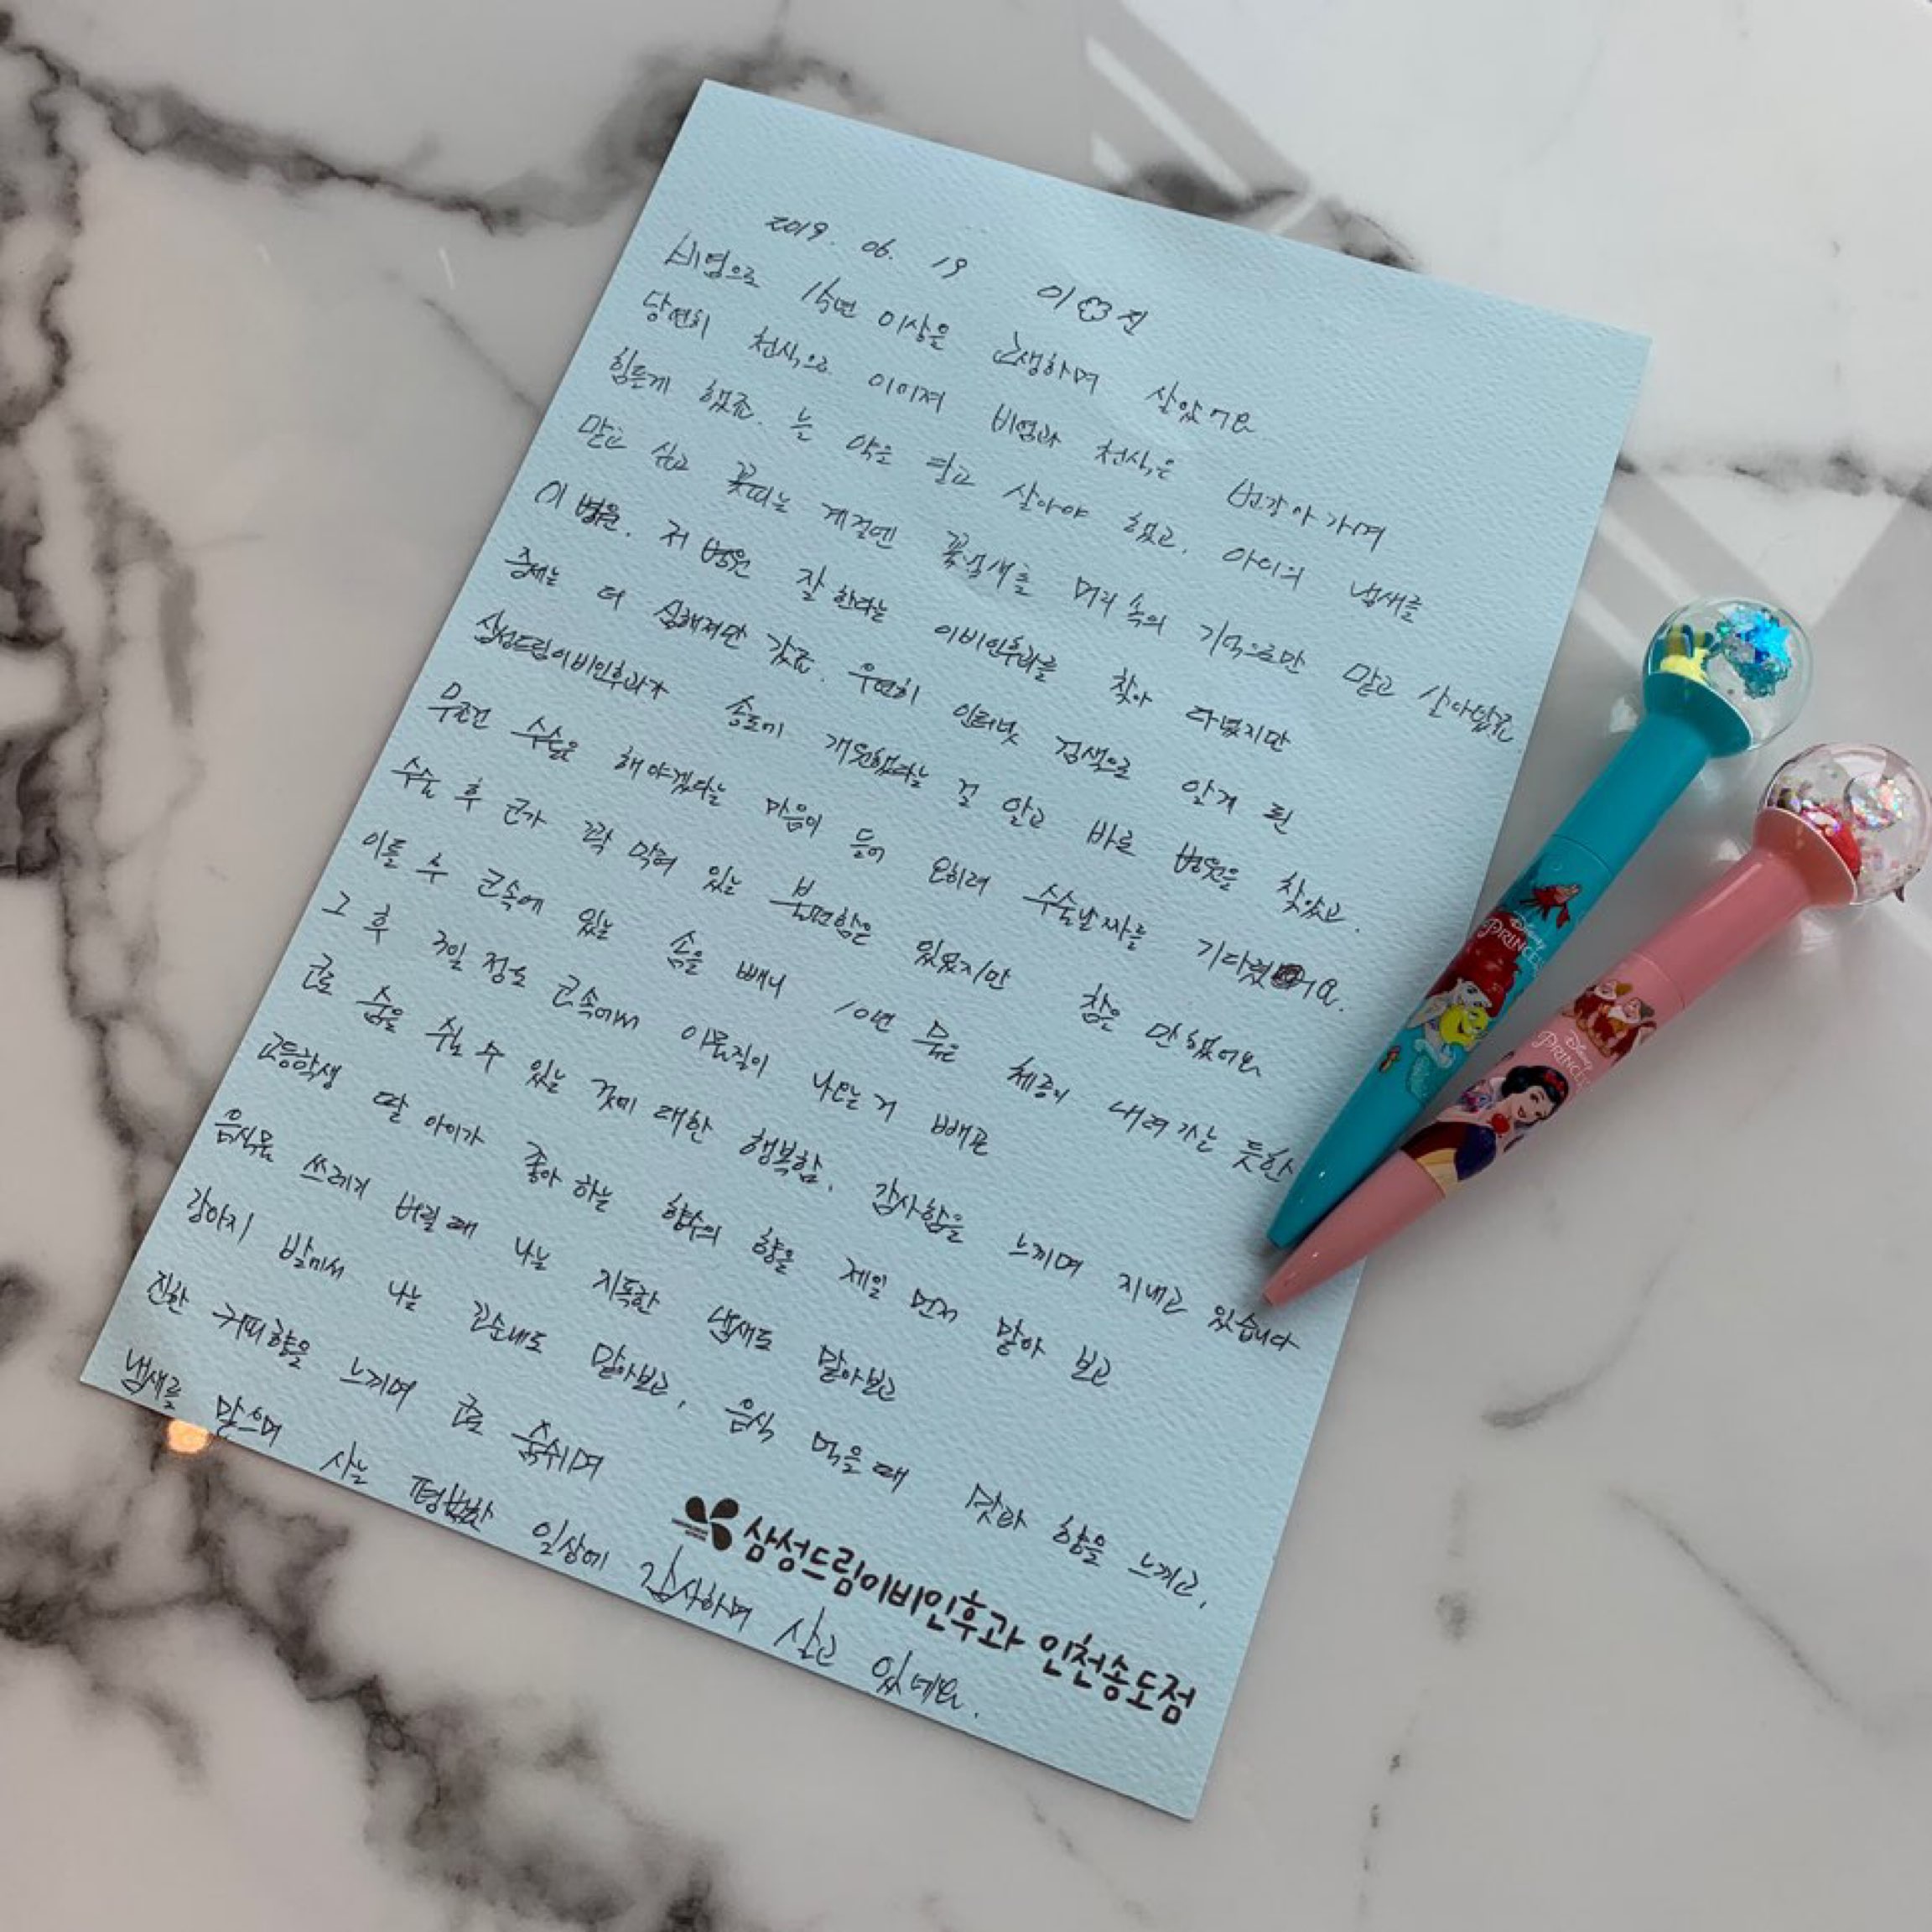 2019. 06. 19 이 진
비염으로 15년 이상을 고생하며 살았어요.
당연히 천식으로 이어져 비염과 천식은 번갈아 가며
힘들게 했죠. 늘 약을 달고 살아야 했고, 아이의 냄새를
맡고 싶고 꽃피는 계절엔 꽃냄새를 머리 속의 기억으로만 맡고 살아왔죠
이 병원. 저 병원 잘 한다는 이비인후과를 찾아 다녔지만
증세는 더 심해져만 갔죠. 우연히 인터넷 검색으로 알게 된
삼성드림이비인후과가 송도에 개원했다는 걸 알고 바로 병원을 찾았고.
무조건 수술을 해야겠다는 마음이 들어 오히려 수술날짜를 기다렸어요.
수술 후 코가 꽉 막혀 있는 불편함은 있었지만 참을 만 했어요
이틀 후 코속에 있는 솜을 빼니 10년 묵은 체증이 내려가는 듯한
그 후 3일 정도 코속에서 이물질이 나오는 거 빼곤
코로 숨을 쉴 수 있는 것에 대한 행복함. 감사함을 느끼며 지내고 있습니다
고등학생 딸 아이가 좋아 하는 향수의 향을 제일 먼저 맡아 보고
음식물 쓰레기 버릴 때 나는 지독한 냄새도 맡아보고
강아지 발에서 나는 꼬순내도 맡아보고, 음식 먹을 때 맛과 향을 느끼고,
진한 커피향을 느끼며 코로 숨쉬며
냄새를 맡으며 사는 평범한 일상에 감사하며 살고 있네요.
삼성드림이비인후과 인천송도점
Disney
PRINCESS
Disney
PRINCESS